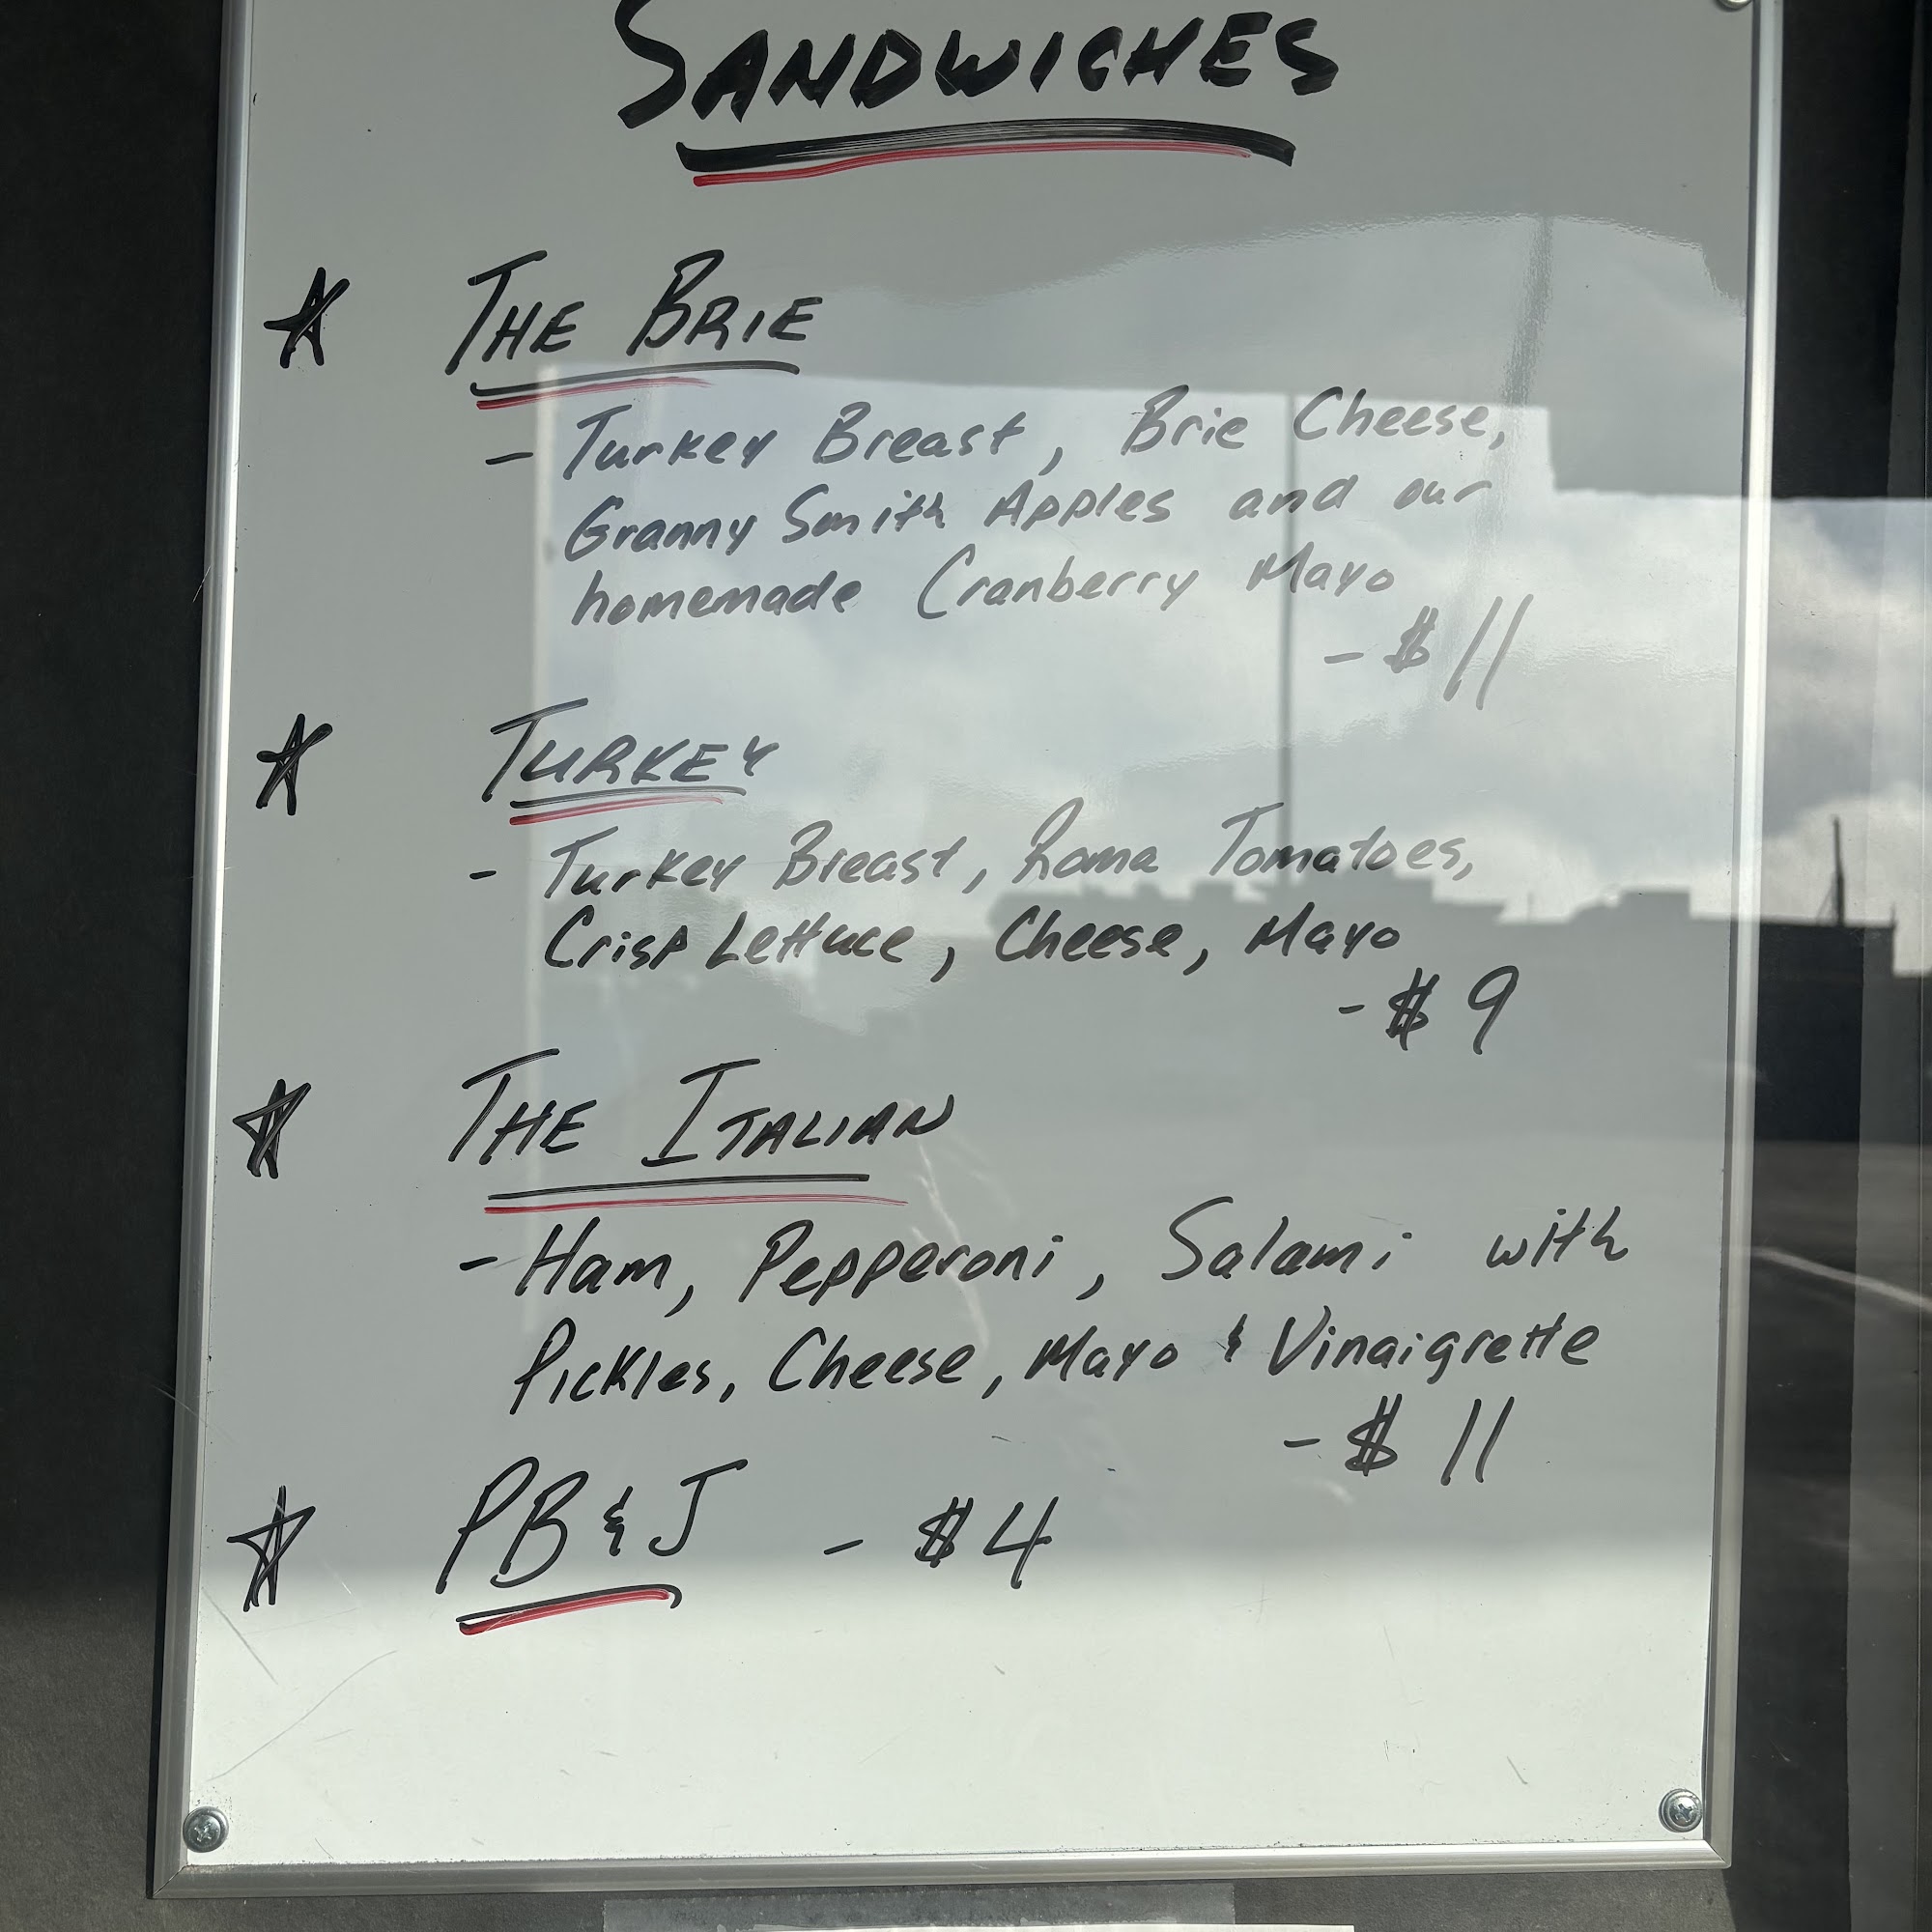 SANDWICHES
THE BRIE
- Turkey Breast, Brie Cheese,
Granny Smith Apples and our
homemade Cranberry Mayo
- $11
TURKEY
- Turkey Breast, Roma Tomatoes,
Crisp Lettuce, Cheese, Mayo
- $9
THE ITALIAN
- Ham, Pepperoni, Salami with
Pickles, Cheese, Mayo & Vinaigrette
- $11
PB & J - $4